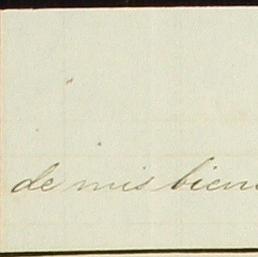 de mis bien